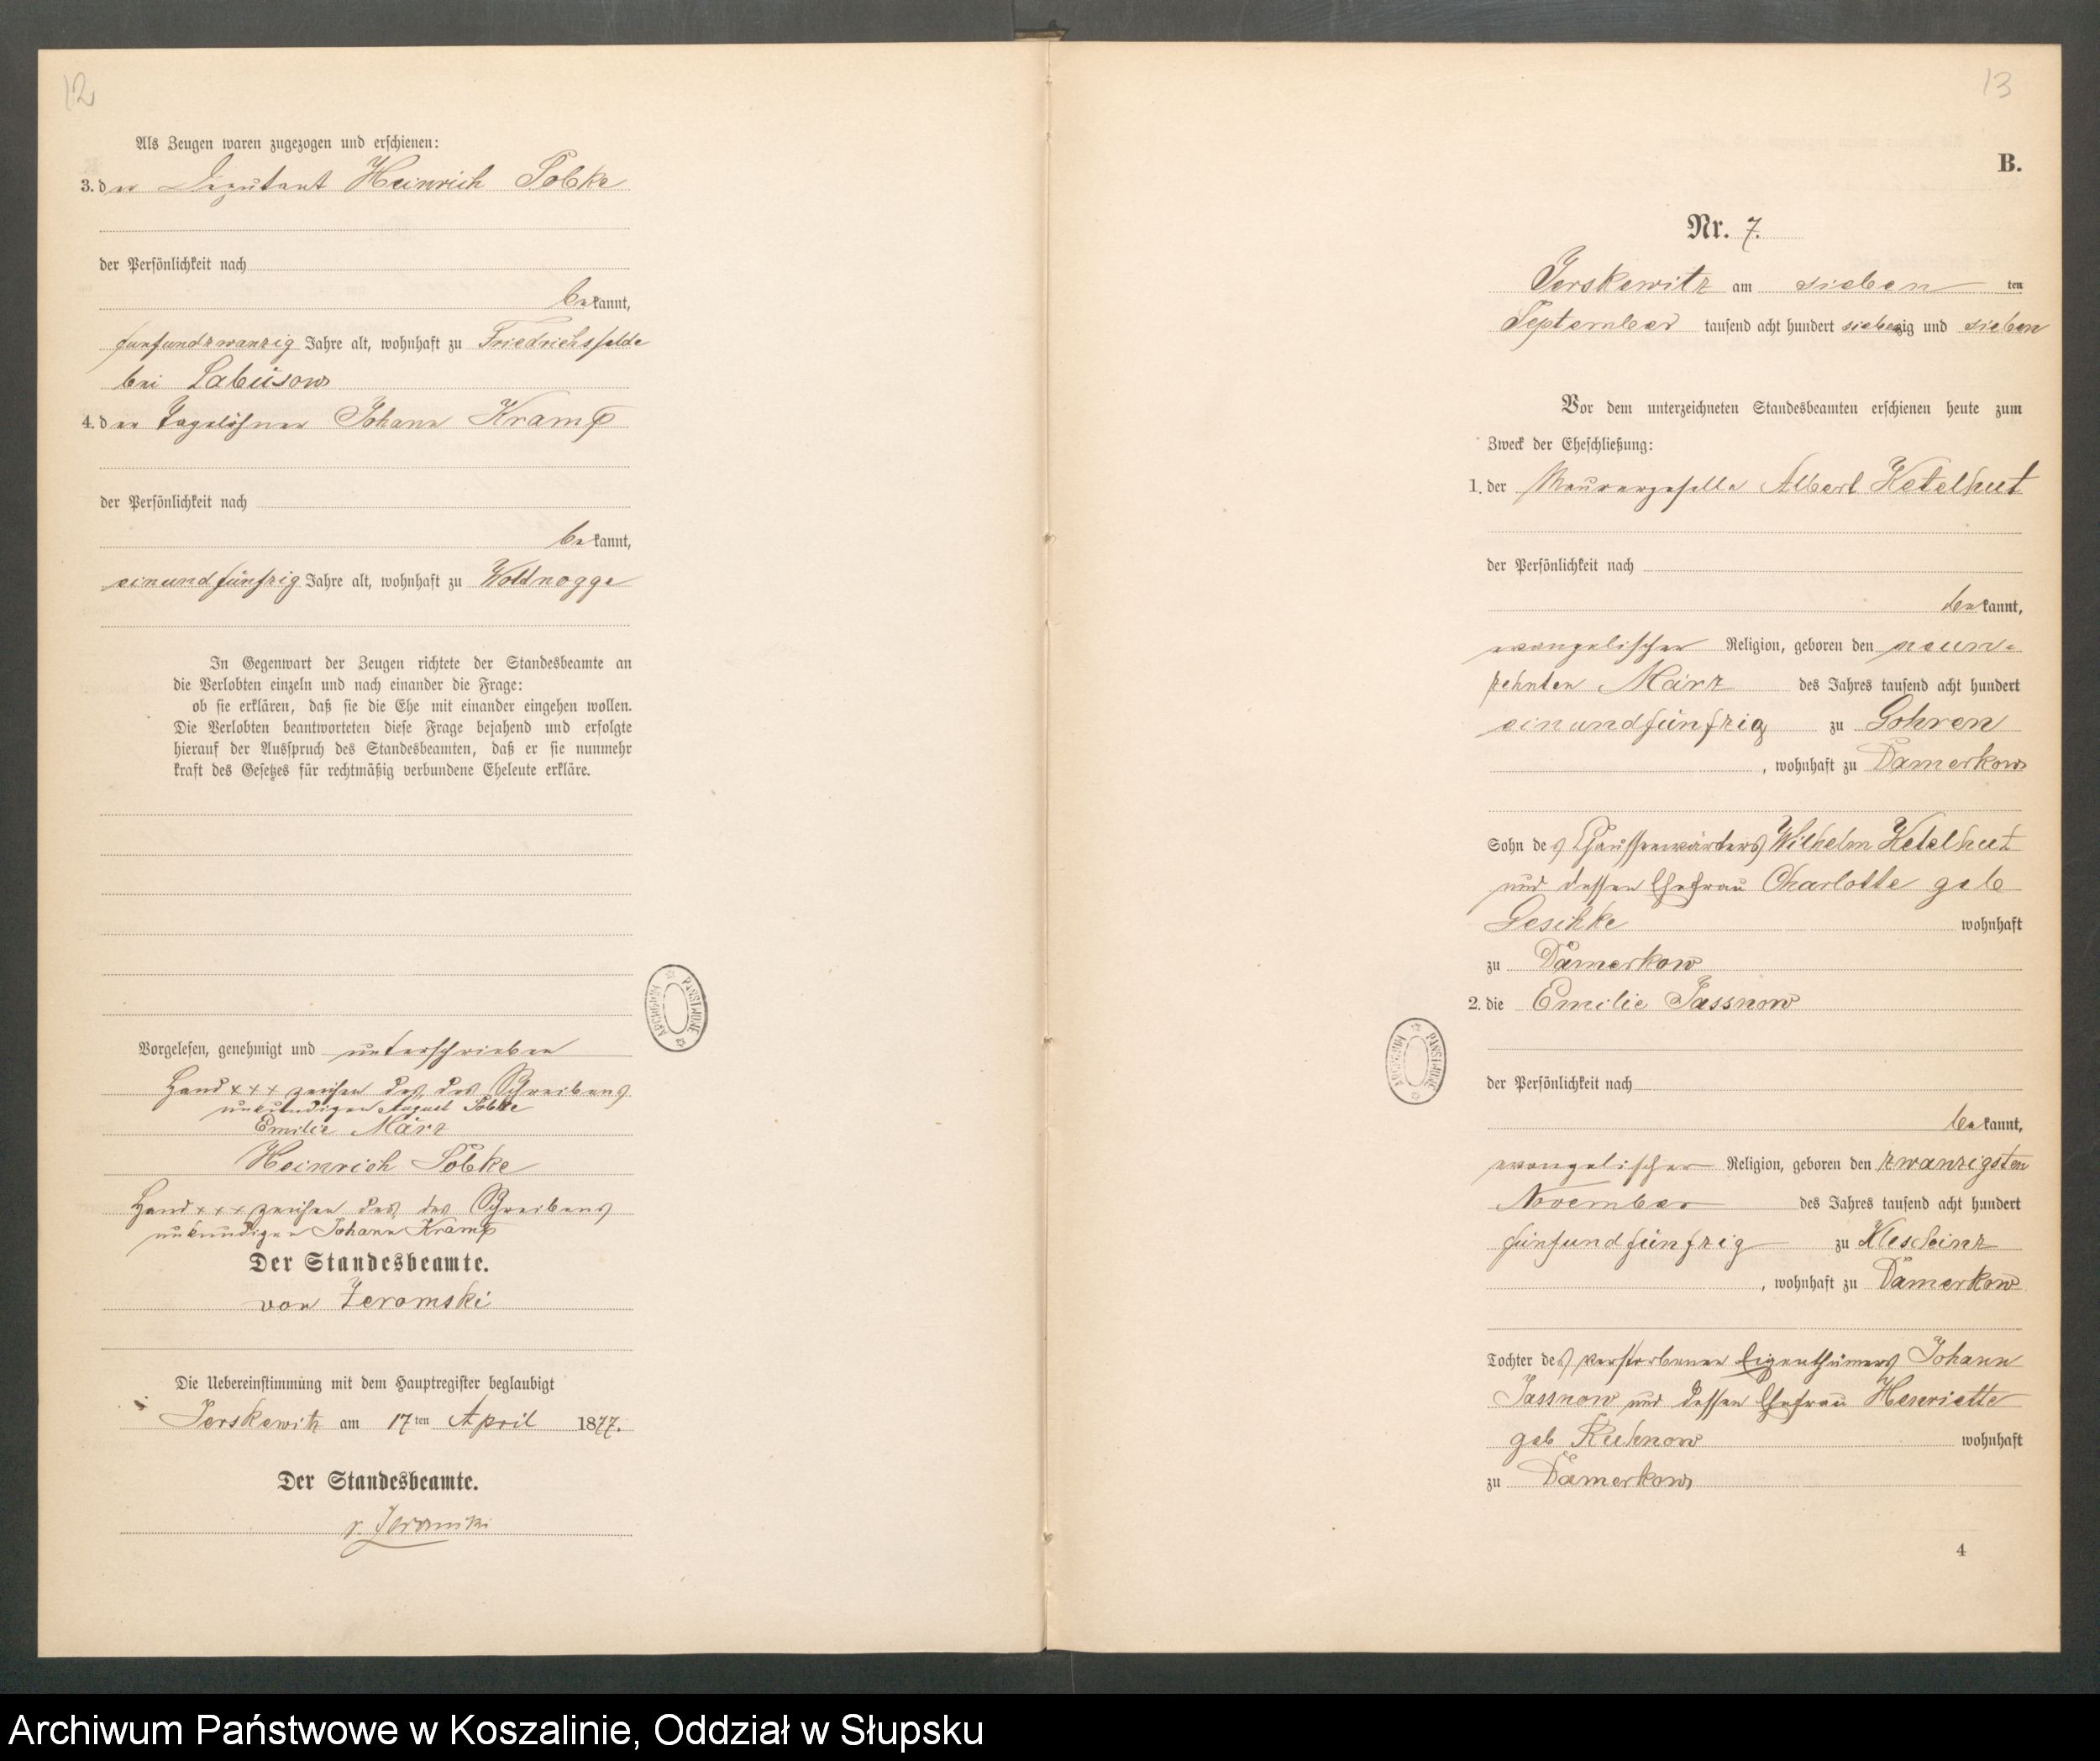 12
Als Zeugen waren zugezogen und erschienen:
3. der Deputant Heinrich Sobke
der Persönlichkeit nach
bekannt,
funfundzwanzig Jahre alt, wohnhaft zu Friedrichsfelde
bei Labüsow
4. der Tagelöhner Johann Kramp
der Persönlichkeit nach
bekannt,
einundfünfzig Jahre alt, wohnhaft zu Woldnogge
In Gegenwart der Zeugen richtete der Standesbeamte an
die Verlobten einzeln und nach einander die Frage:
ob sie erklären, daß sie die Ehe mit einander eingehen wollen.
Die Verlobten beantworteten diese Frage bejahend und erfolgte
hierauf der Ausspruch des Standesbeamten, daß er sie nunmehr
kraft des Gesetzes für rechtmäßig verbundene Eheleute erkläre.
Vorgelesen, genehmigt und unterschrieben
Hand xxx zeichen des, des Schreibens
unkundigen August Sobke
Emilie März
Heinrich Sobke
Hand xxx zeichen des, des Schreibens
unkundigen Johann Kramp
Der Standesbeamte.
von Zeromski
Die Uebereinstimmung mit dem Hauptregister beglaubigt
Jerskewitz am 17ten April 1877.
Der Standesbeamte.
v. Zeromski
ARCHIWUM PAŃSTWOWE
13
B.
Nr. 7.
Jerskewitz am sieben ten
September tausend acht hundert siebenzig und sieben
Vor dem unterzeichneten Standesbeamten erschienen heute zum
Zweck der Eheschließung:
1. der Maurergeselle Albert Ketelhut
der Persönlichkeit nach
bekannt,
evangelischer Religion, geboren den neun-
zehnten März des Jahres tausend acht hundert
einundfünfzig zu Gohren
, wohnhaft zu Damerkow
Sohn des Chausseewärters Wilhelm Ketelhut
und dessen Ehefrau Charlotte geb
wohnhaft
zu Damerkow
2. die Emilie Jassnow
der Persönlichkeit nach
bekannt,
evangelischer Religion, geboren den zwanzigsten
November des Jahres tausend acht hundert
fünfundfünfzig zu Kleschinz
, wohnhaft zu Damerkow
Tochter des verstorbenen Eigenthümers Johann
Jassnow und dessen Ehefrau Henriette
geb Kuhnow wohnhaft
zu Damerkow
4
ARCHIWUM PAŃSTWOWE
Archiwum Państwowe w Koszalinie, Oddział w Słupsku